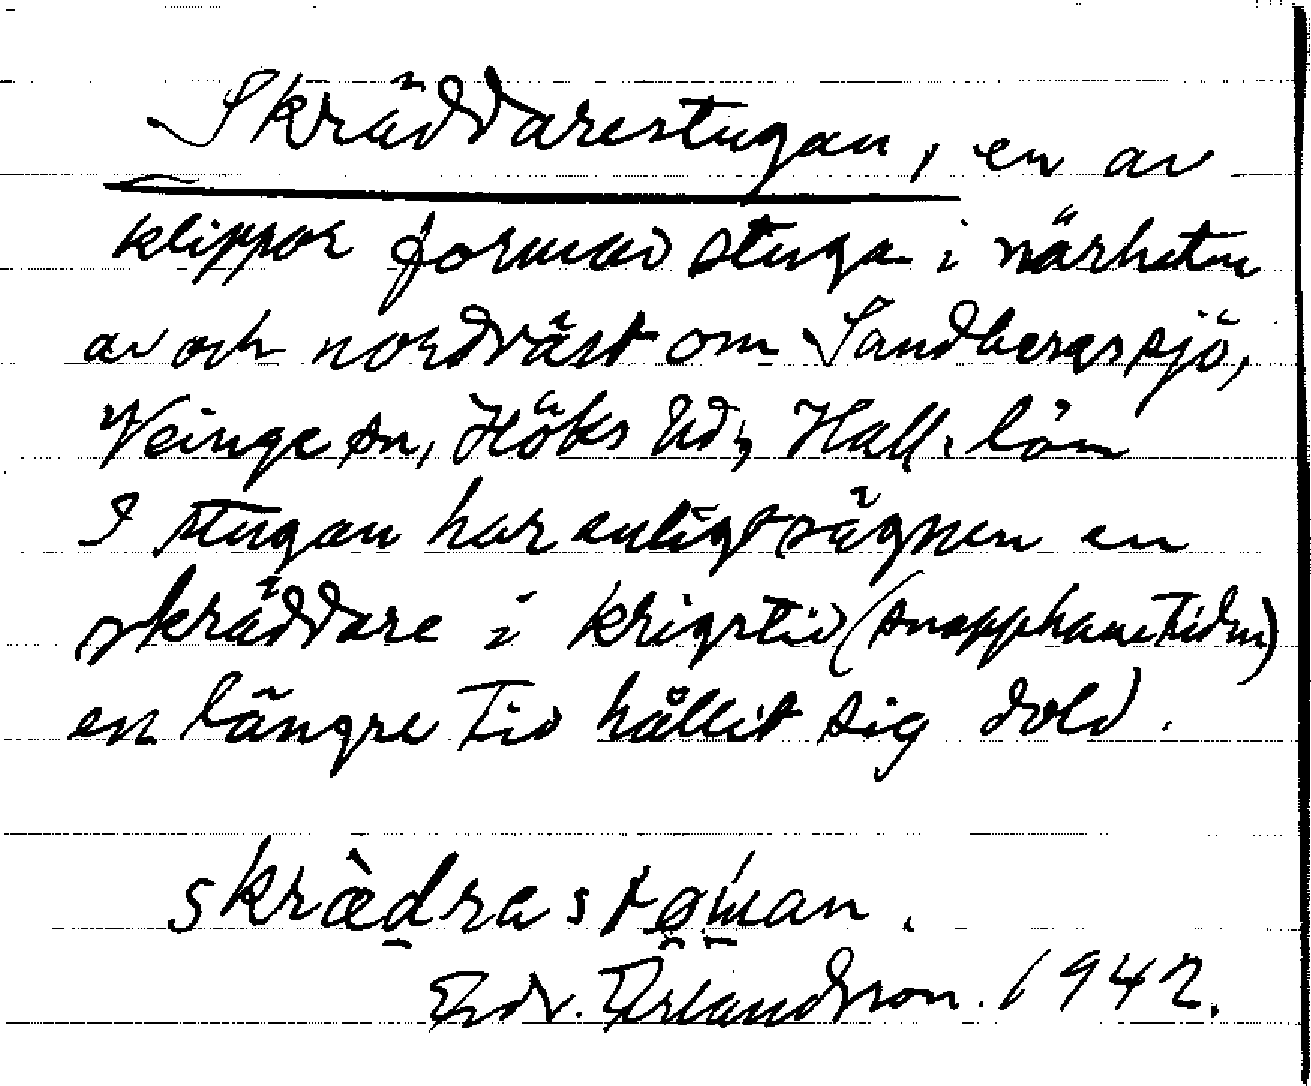 Skräddarestugan, en av
klippor formad stuga i närheten
av och nordväst om Sandbergssjö,
Veinge sn, Höks hd, Hall. län
I stugan har enligt sägnen en
skräddare i krigstid (snapphanetiden)
en längre tid hållit sig dold.
skràdrast
Edv. Örlandsson. 1942.